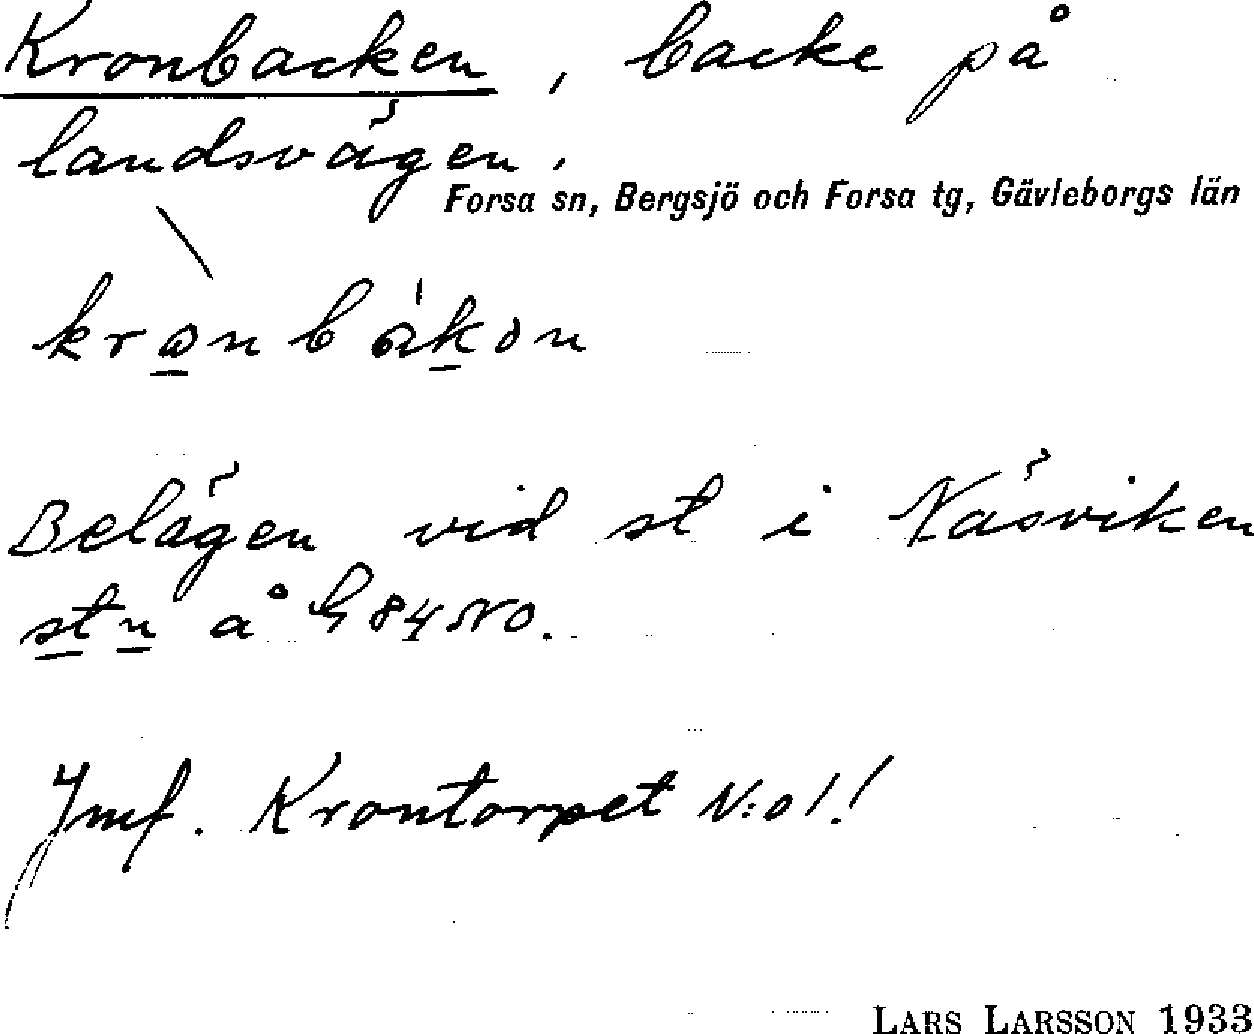 Kronbacken, backe på
landsvägen.
Forsa sn, Bergsjö och Forsa tg, Gävleborgs län
kronbakon
Belägen vid st i Näsviken
stn å G 84 NO.
Jmf. Krontorpet N:o 1!
LARS LARSSON 1933